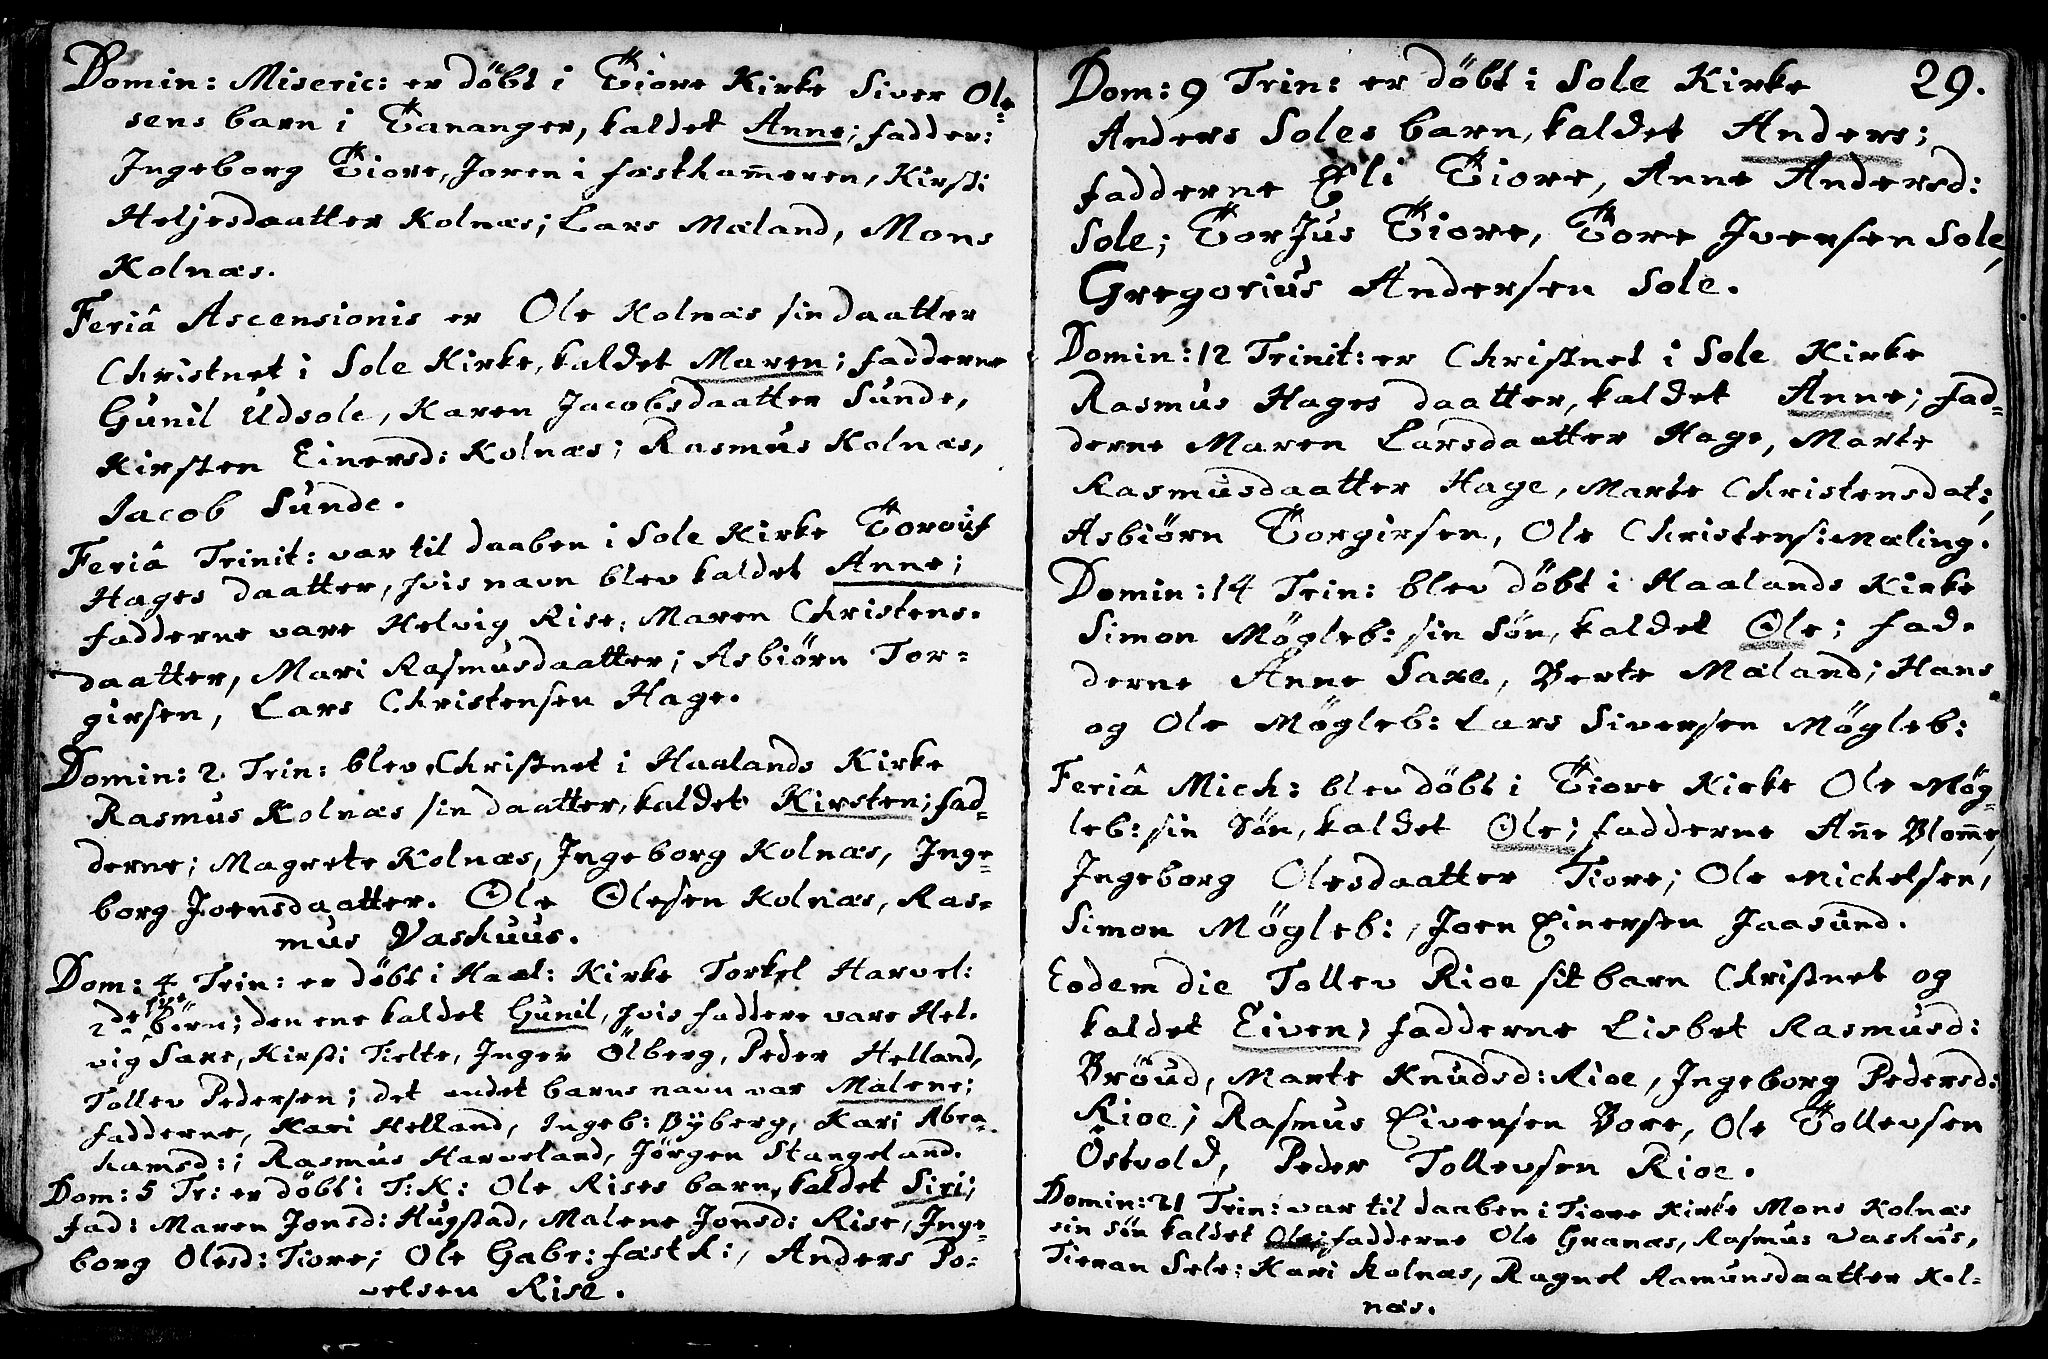 Domin: Miseric: er döbt i Tiore Kirke Siver Ole=
sens barn i Tananger, kaldet Anne; fadder:
Ingeborg Tiore, Joren i fæstkam̄eren, Kirsti
Heljesdaatter Kolnæs; Lars Mæland, Mons
Kolnæs.
Feriâ Ascensionis er Ole Kolnæs sin daatter
Christnet i Sole Kirke, kaldet Maren; fadderne
Gunil Udsole, Karen Jacobsdaatter Sunde,
Kirsten Einersd: Kolnæs; Rasmus Kolnæs,
Jacob Sunde.
Feriâ Trinit: var til daaben i Sole Kirke
Hages daatter, hvis navn blev kaldet Anne;
fadderne vare Helvig Rise, Maren Christens-
daatter, Mari Rasmusdaatter; Asbiörn Tor=
girsen, Lars Christensen Hage.
Domin: 2 Trin: blev Christnet i Haalands Kirke
Rasmus Kolnæs sin daatter, kaldet Kirsten; fad=
derne; Magrete Kolnæs, Ingeborg Kolnæs, Inge=
borg Joensdaatter. Ole Olesen Kolnæs, Ras=
mus Vashuus.
Dom: 4 Trin: er döbt i Haal: Kirke Torkel Harvel:
2de börn; den ene kaldet Gunil, hvis faddere vare Hel-
vig Saxe, Kirsti Tielte, Inger Ölberg, Peder Helland,
Tollev Pedersen; det andet barns navn var Malene;
fadderne, Kari Helland, Ingeb: Byberg, Kari Abra=
hamsd:; Rasmus Harveland, Jörgen Stangeland.
Dom: 5 Tr: er döbt i T: K: Ole Rises barn, kaldet Siri;
fad: Maren Jonsd: Hugstad, Malene Jonsd: Rise, Inge=
borg Olesd: Tiore; Ole Gabr: fæstk:, Anders Po=
velsen Rise.
29.
Dom: 9 Trin: er döbt i Sole Kirke
Anders Soles barn, kaldet Anders;
fadderne Eli Tiore, Anne Andersd:
Sole; Torjus Tiore, Tore Iversen Sole,
Gregorius Andersen Sole.
Domin: 12 Trinit: er Christnet i Sole Kirke
Rasmus Hages daatter, kaldet Anne; fad=
derne Maren Larsdaatter Hage, Marte
Rasmusdaatter Hage, Marte Christensdat:;
Asbiörn Torgirsen, Ole Christens: Mæling.
Domin: 14 Trin: blev döbt i Haalands Kirke
Simon Mögleb: sin Sön, kaldet Ole; fad-
derne Anne Saxe, Berte Mæland; Hans
og Ole Mögleb: Lars Siversen Mögleb:
Feriâ Mich: blev döbt i Tiore Kirke Ole Mög=
leb: sin Sön, kaldet Ole; fadderne An̄e Blom̄e,
Ingeborg Olesdaatter Tiore; Ole Michelsen,
Simon Mögleb:, Joen Einersen Jaasund.
Eodem die Tollev Rioe sit barn Christnet og
kaldet Eiven; fadderne Lisbet Rasmusd:
Bröud, Marte Knudsd: Rioe, Ingeborg Pedersd:
Rioe; Rasmus Eivensen Bore, Ole Tollevsen
Östvold, Peder Tollevsen Rioe.
Domin: 21 Trin: var til daaben i Tiore Kirke Mons Kolnæs
sin sön kaldet Ole; fadderne Ole Granæs, Rasmus Vashus,
Tieran Sele: Kari Kolnæs, Ragnel Ramunsdaatter Kol=
næs.